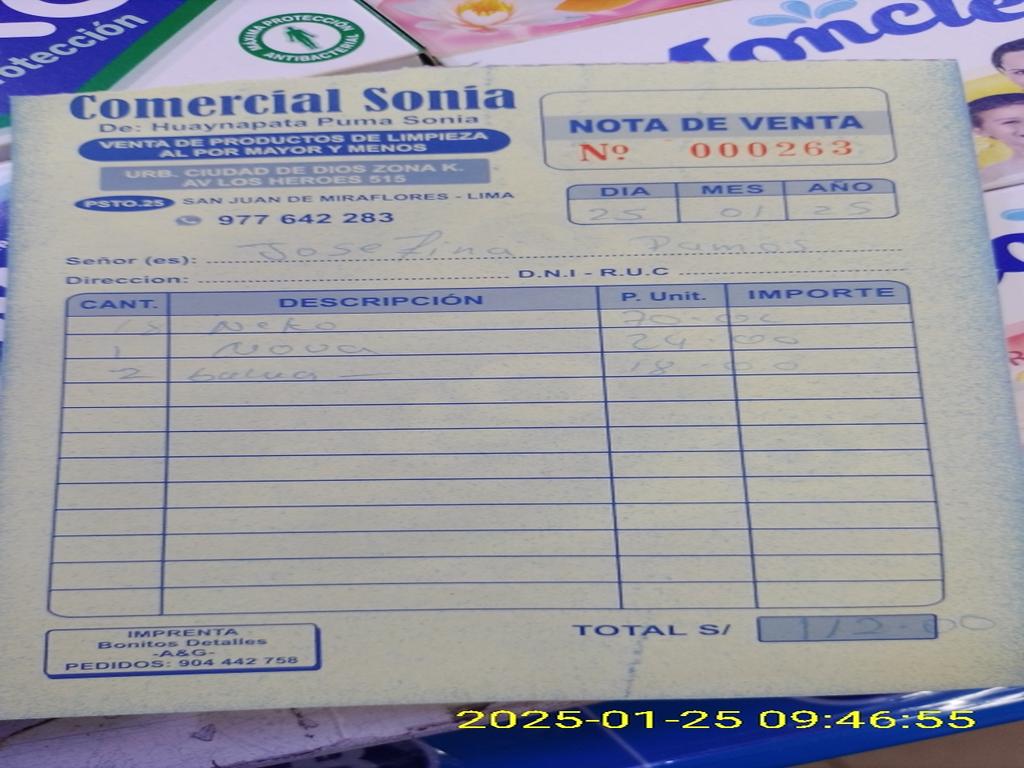 rotección
MÁXIMA PROTECCIÓN
ANTIBACTERIAL
Moncle
Comercial Sonia
De: Huaynapata Puma Sonia
VENTA DE PRODUCTOS DE LIMPIEZA
AL POR MAYOR Y MENOS
URB. CIUDAD DE DIOS ZONA K.
AV LOS HEROES 515
PSTO.25 SAN JUAN DE MIRAFLORES - LIMA
977 642 283
NOTA DE VENTA
Nº 000263
DIA MES AÑO
25 01 25
Señor (es): Josefina Ramos
Direccion: D.N.I - R.U.C
CANT. DESCRIPCIÓN P. Unit. IMPORTE
Neko 70.00
1 Nova 24.00
2 18.00
TOTAL S/ 112.00
IMPRENTA
Bonitos Detalles
-A&G-
PEDIDOS: 904 442 758
2025-01-25 09:46:55